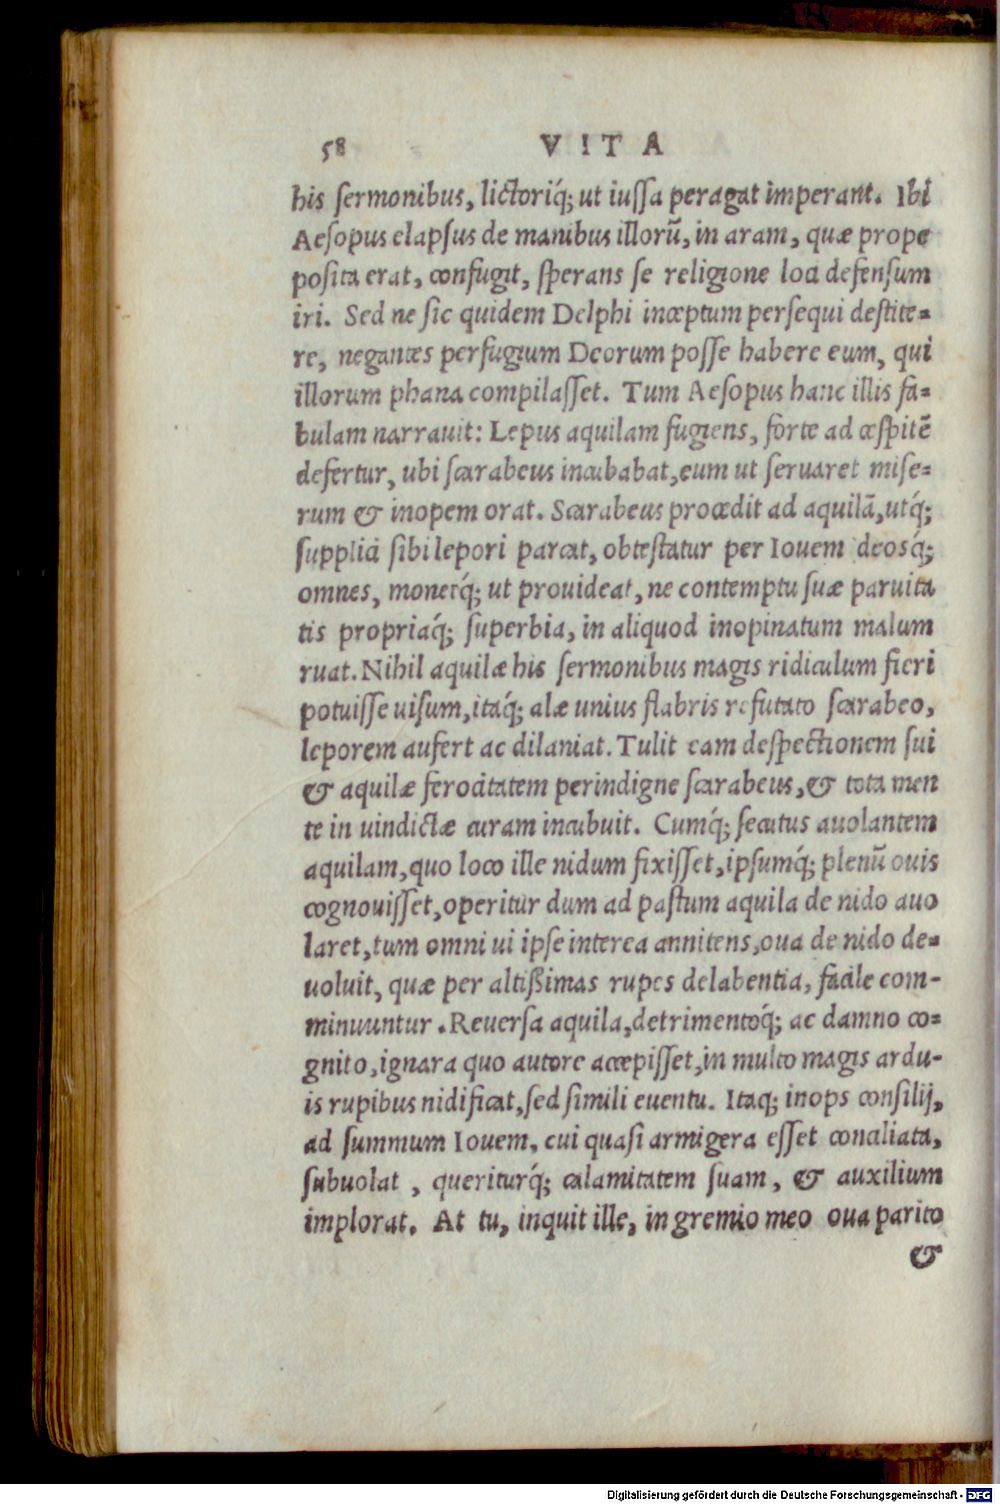 58 VITA
his sermonibus, lictoriq́; ut iussa peragat imperant. Ibi
Aesopus elapsus de manibus illorũ, in aram, quæ prope
posita erat, confugit, sperans se religione loci defensum
iri. Sed ne sic quidem Delphi inceptum persequi destite=
re, negantes perfugium Deorum posse habere eum, qui
illorum phana compilasset. Tum Aesopus hanc illis fa=
bulam narrauit: Lepus aquilam fugiens, forte ad cespitẽ
defertur, ubi scarabeus incubabat, eum ut seruaret mise=
rum & inopem orat. Scarabeus procedit ad aquilã, utq́;
supplici sibi lepori parcat, obtestatur per Iouem deosq́;
omnes, monetq́; ut prouideat, ne contemptu suæ paruita
tis propriaq́; superbia, in aliquod inopinatum malum
ruat. Nihil aquilæ his sermonibus magis ridiculum fieri
potuisse uisum, itaq́; alæ unius flabris refutato scarabeo,
leporem aufert ac dilaniat. Tulit eam despectionem sui
& aquilæ ferocitatem perindigne scarabeus, & tota men
te in uindictæ curam incubuit. Cumq́; secutus auolantem
aquilam, quo loco ille nidum fixisset, ipsumq́; plenũ ouis
cognouisset, operitur dum ad pastum aquila de nido auo
laret, tum omni ui ipse interea annitens, oua de nido de=
uoluit, quæ per altißimas rupes delabentia, facile com-
minuuntur. Reuersa aquila, detrimentoq́; ac damno co=
gnito, ignara quo autore accepisset, in multo magis ardu-
is rupibus nidificat, sed simili euentu. Itaq; inops consilij,
ad summum Iouem, cui quasi armigera esset conciliata,
subuolat, queriturq́; calamitatem suam, & auxilium
implorat. At tu, inquit ille, in gremio meo oua parito
&
Digitalisierung gefördert durch die Deutsche Forschungsgemeinschaft - DFG